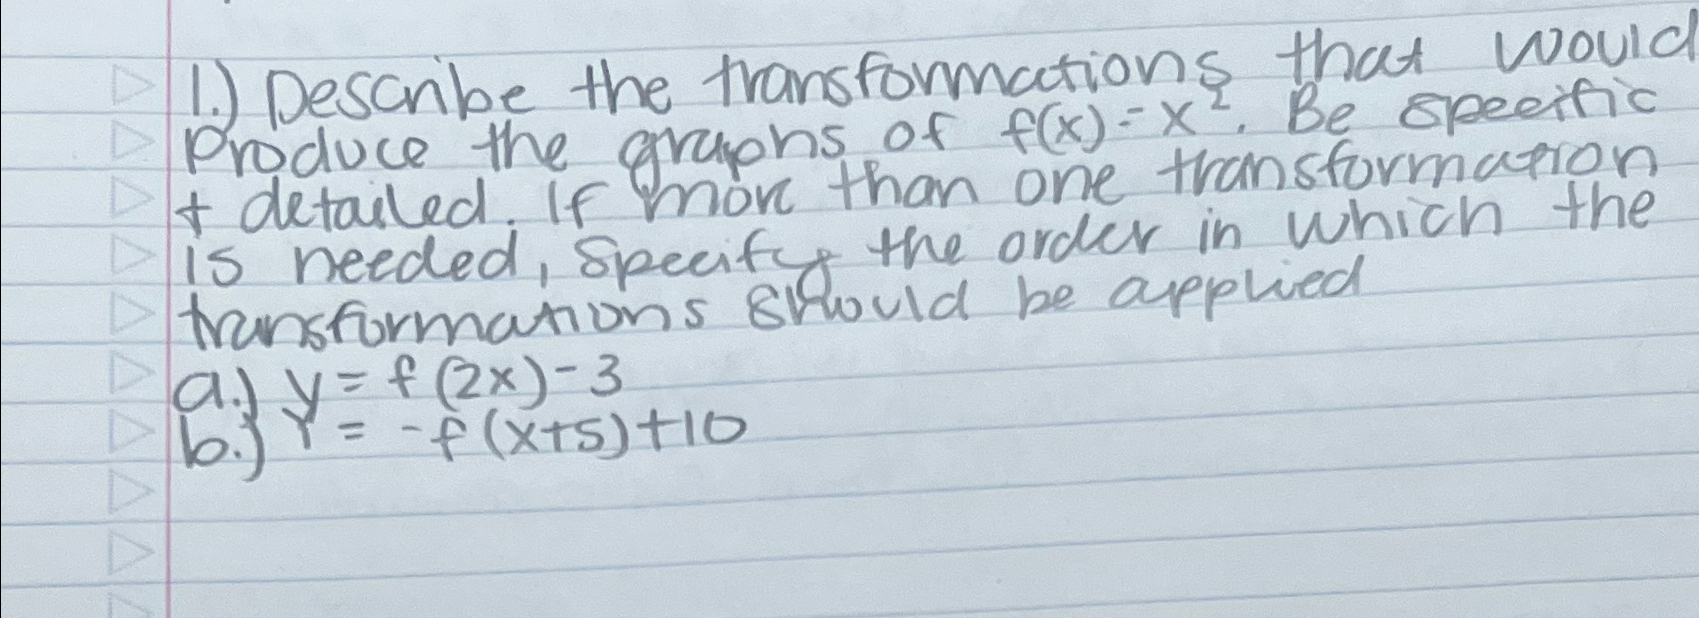 1.) Describe the transformations that would
produce the graphs of f(x) = x². Be specific
+ detailed. If more than one transformation
is needed, specify the order in which the
transformations should be applied
a.) y = f(2x) - 3
b.) Y = -f(x+5) + 10